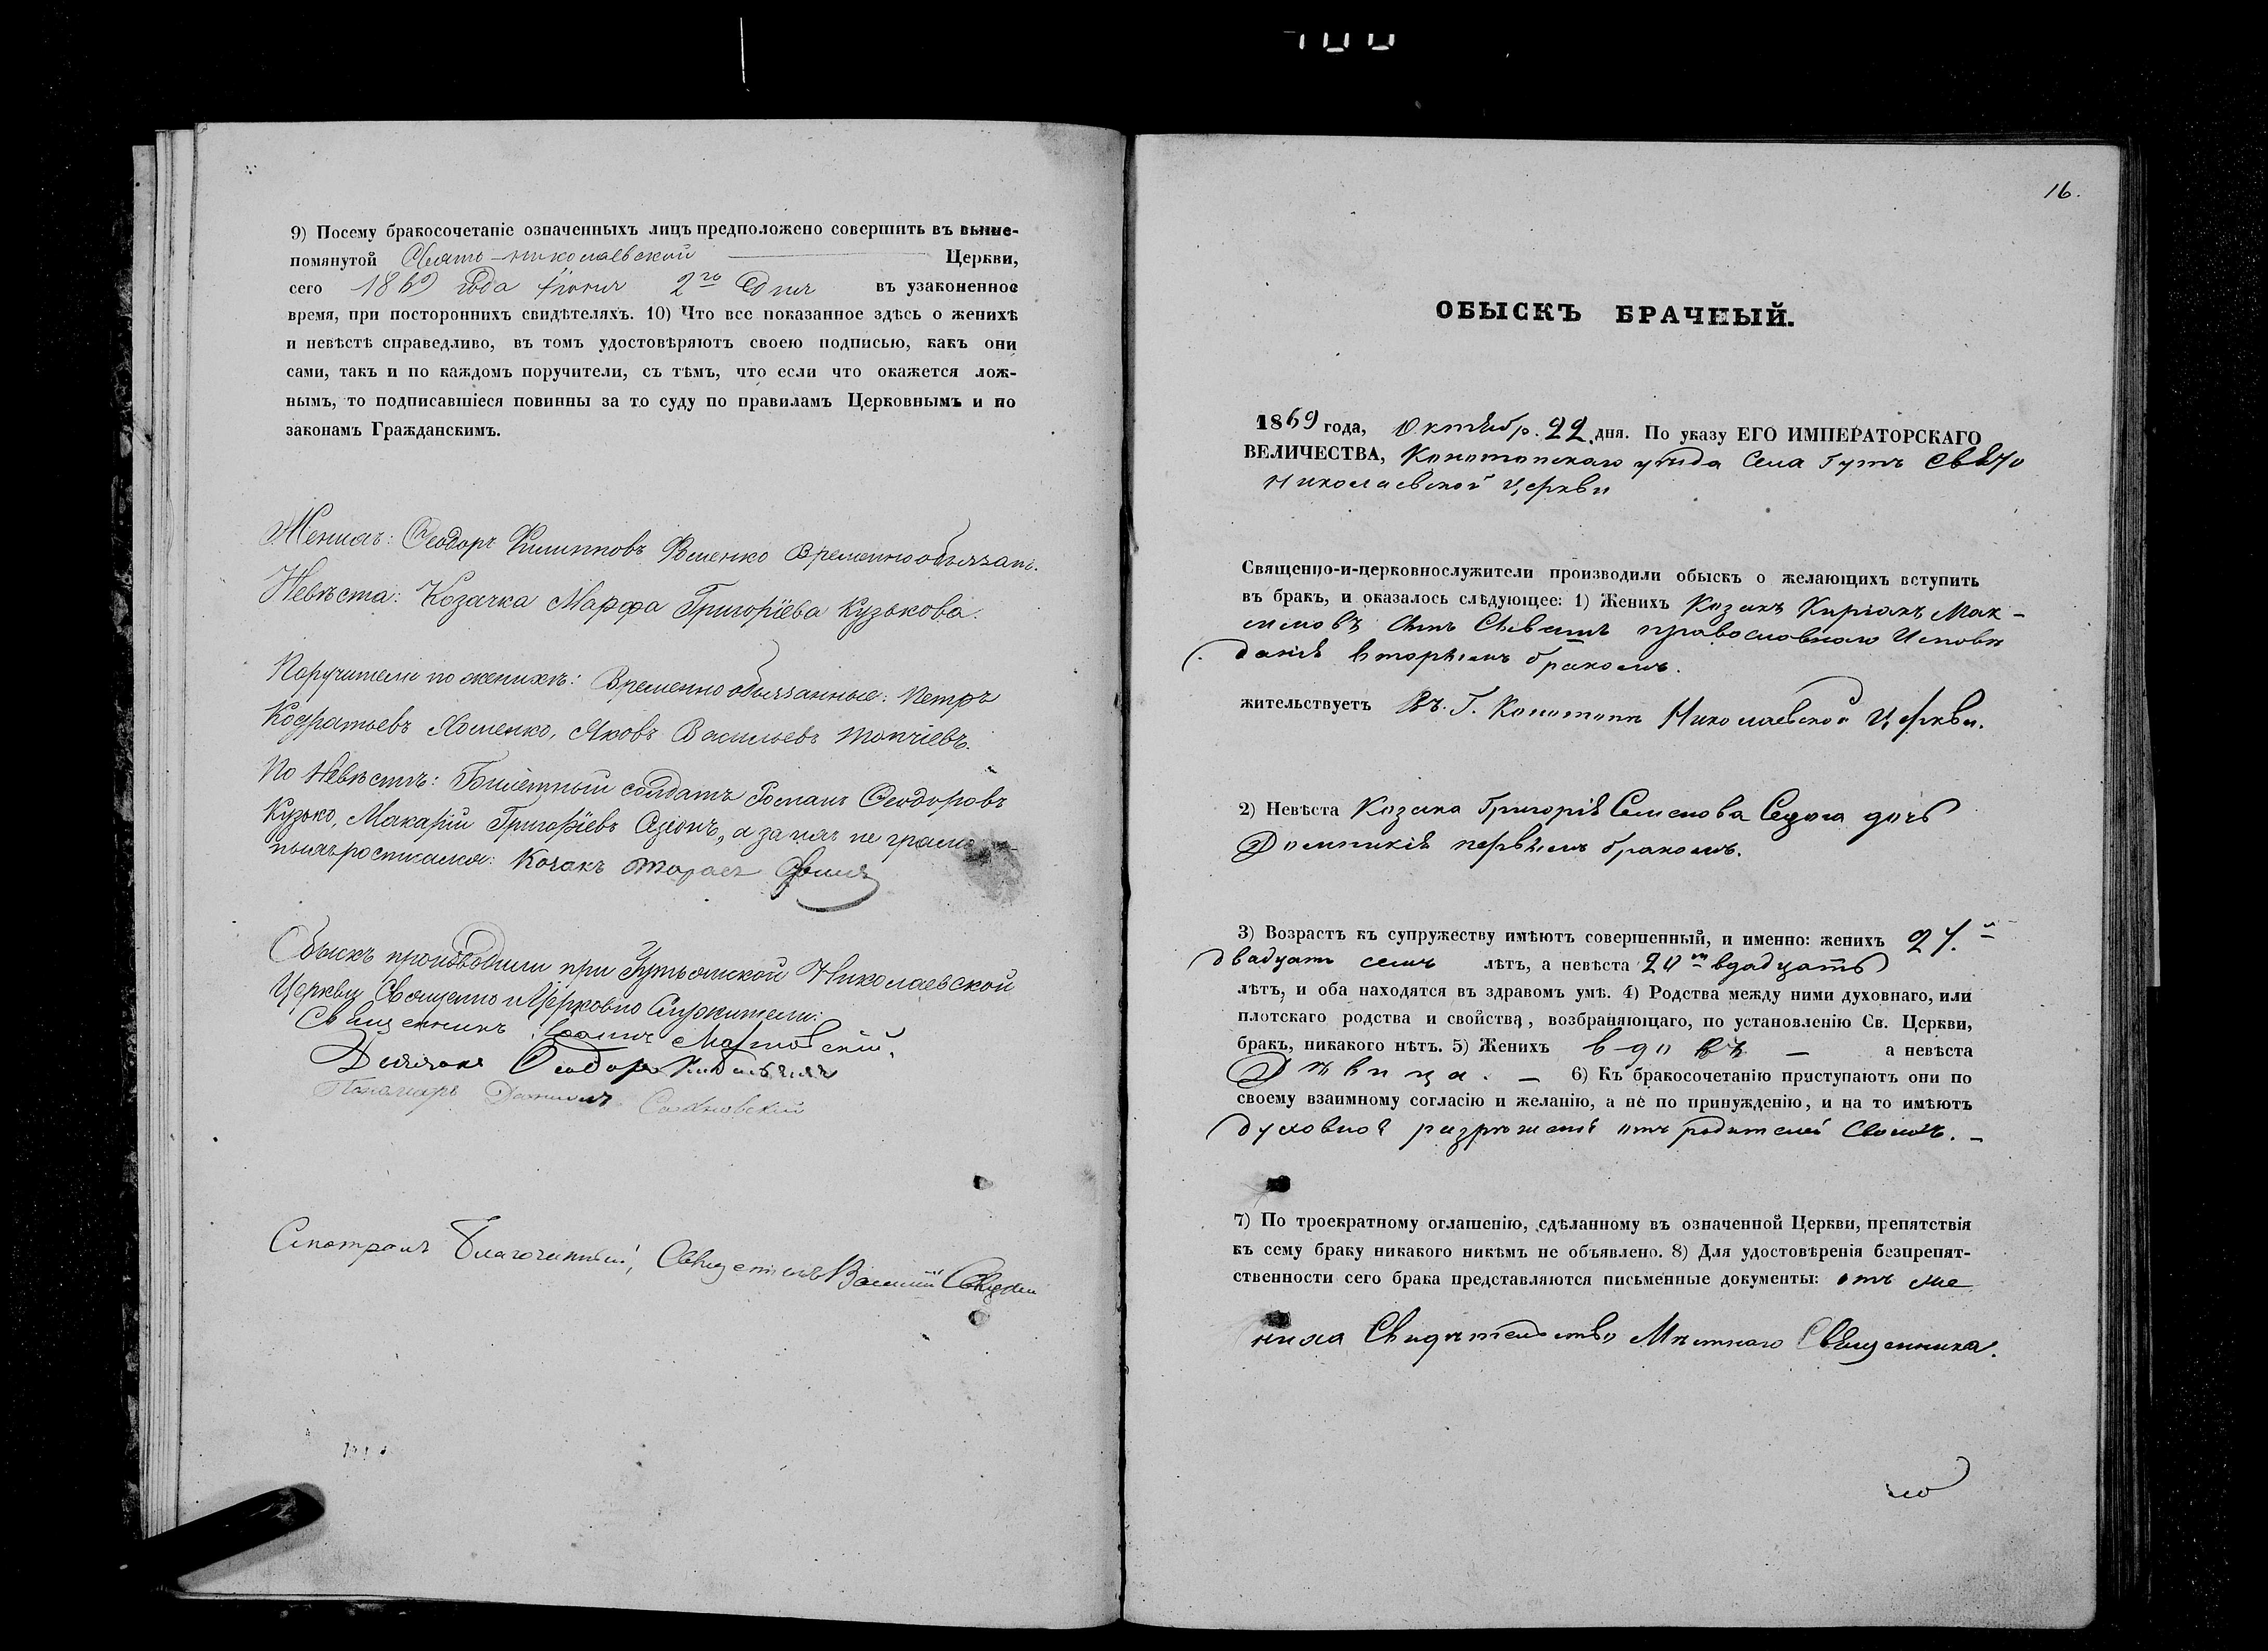 9) Посему бракосочетаніе означенныхъ лицъ предположено совершить въ выше-
помянутой Свято-николаевской Церкви,
сего 1869 года Іюня 2го дня въ узаконенное
время, при постороннихъ свидѣтеляхъ. 10) Что все показанное здѣсь о женихѣ
и невѣстѣ справедливо, въ томъ удостовѣряютъ своею подписью, какъ они
сами, такъ и по каждомъ поручители, съ тѣмъ, что если что окажется лож-
нымъ, то подписавшіеся повинны за то суду по правиламъ Церковнымъ и по
законамъ Гражданскимъ.
Женихъ: Ѳеодоръ Филипповъ Хоменко Временнообязан.
Невѣста: Козачка Марфа Григоріева Кузькова.
Поручители по женихѣ: Временнообязанные: Петръ
Кодратьевъ Хоменко, Яковъ Васильевъ Топчіевъ.
По Невѣстѣ: Билетный солдатъ Романъ Ѳеодоровъ
Кузько, Макарій Григоріевъ а за нихъ не грамо
тныхъ росписался: Козакъ Тарасъ
Обыскъ производили при Гутянской Николаевской
Церкви Священно и Церковно Служители:
Священникъ Іоаннъ
Дьячокъ Ѳеодоръ
Пономарь Даніилъ
Смотрѣлъ Благочинный, Священникъ Василій
16.
ОБЫСКЪ БРАЧНЫЙ.
1869 года, Октябр. 22 дня. По указу ЕГО ИМПЕРАТОРСКАГО
ВЕЛИЧЕСТВА, Конотопскаго уѣзда Села Гутъ Свято
Николаевской Церкви
Священно-и-церковнослужители производили обыскъ о желающихъ вступить
въ бракъ, и оказалось слѣдующее: 1) Женихъ Козакъ Киріакъ Мак-
симовъ сынъ православнаго Исповѣ
данія вторымъ бракомъ.
жительствуетъ Въ Г. Конотопѣ Николаевской Церкви.
2) Невѣста Козака Григорія Семенова дочь
Домникія первымъ бракомъ.
3) Возрастъ къ супружеству имѣютъ совершенный, и именно: женихъ 27.
двадцать семь лѣтъ, а невѣста 20 вдадцать
лѣтъ, и оба находятся въ здравомъ умѣ. 4) Родства между ними духовнаго, или
плотскаго родства и свойства, возбраняющаго, по установленію Св. Церкви,
бракъ, никакого нѣтъ. 5) Женихъ вдовъ — а невѣста
Дѣвица. — 6) Къ бракосочетанію приступаютъ они по
своему взаимному согласію и желанію, а не по принужденію, и на то имѣютъ
духовное разрѣшеніе отъ родителей своихъ. —
7) По троекратному оглашенію, сдѣланному въ означенной Церкви, препятствія
къ сему браку никакого никѣмъ не объявлено. 8) Для удостовѣренія безпрепят-
ственности сего брака представляются письменные документы: отъ же
ниха Свидѣтельство Мѣстнаго Священника.